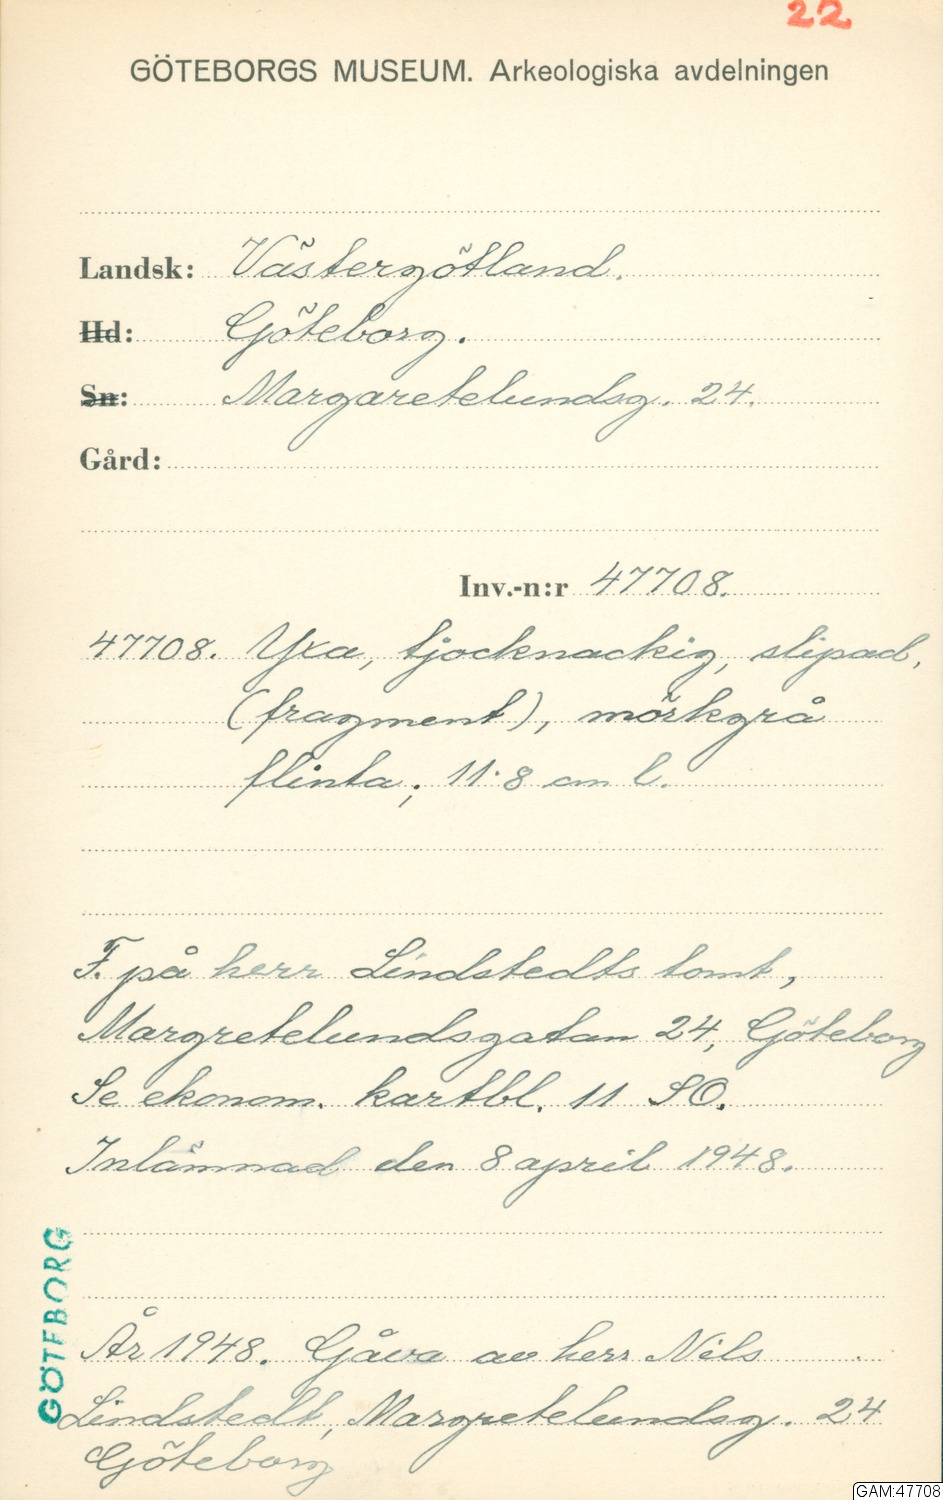 22
GÖTEBORGS MUSEUM. Arkeologiska avdelningen
Landsk: Västergötland.
Hd: Göteborg.
Sn: Margaretelundsg. 24.
Gård:
Inv.-n:r 47708.
47708. Yxa, tjocknackig, slipad,
(fragment), mörkgrå
flinta; 11.8 cm l.
F. på herr Lindstedts tomt,
Margretelundsgatan 24, Göteborg
Se ekonom. kartbl. 11 SO.
Inlämnad den 8 april 1948.
GÖTEBORG
År 1948. Gåva av herr Nils
Lindstedt, Margretelundsg. 24
Göteborg
GAM:47708